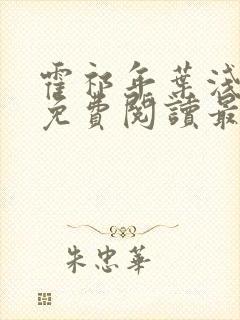 霍祁年葉淺
免費閱讀最
朱忠華